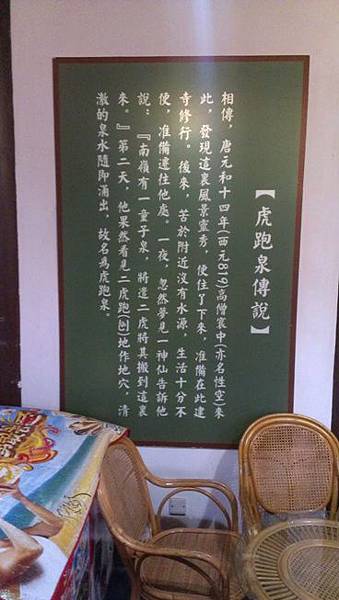 【虎跑泉傳說】
相傳，唐元和十四年(西元819)高僧寰中(亦名性空)來
此，發現這裏風景靈秀，便住了下來，准備在此建
寺修行。後來，苦於附近沒有水源，生活十分不
便，准備遷往他處。一夜，忽然夢見一神仙告訴他
說：『南嶺有一童子泉，將遣二虎將其搬到這裏
來。』第二天，他果然看見二虎跑(刨)地作地穴，清
澈的泉水隨即涌出，故名為虎跑泉。